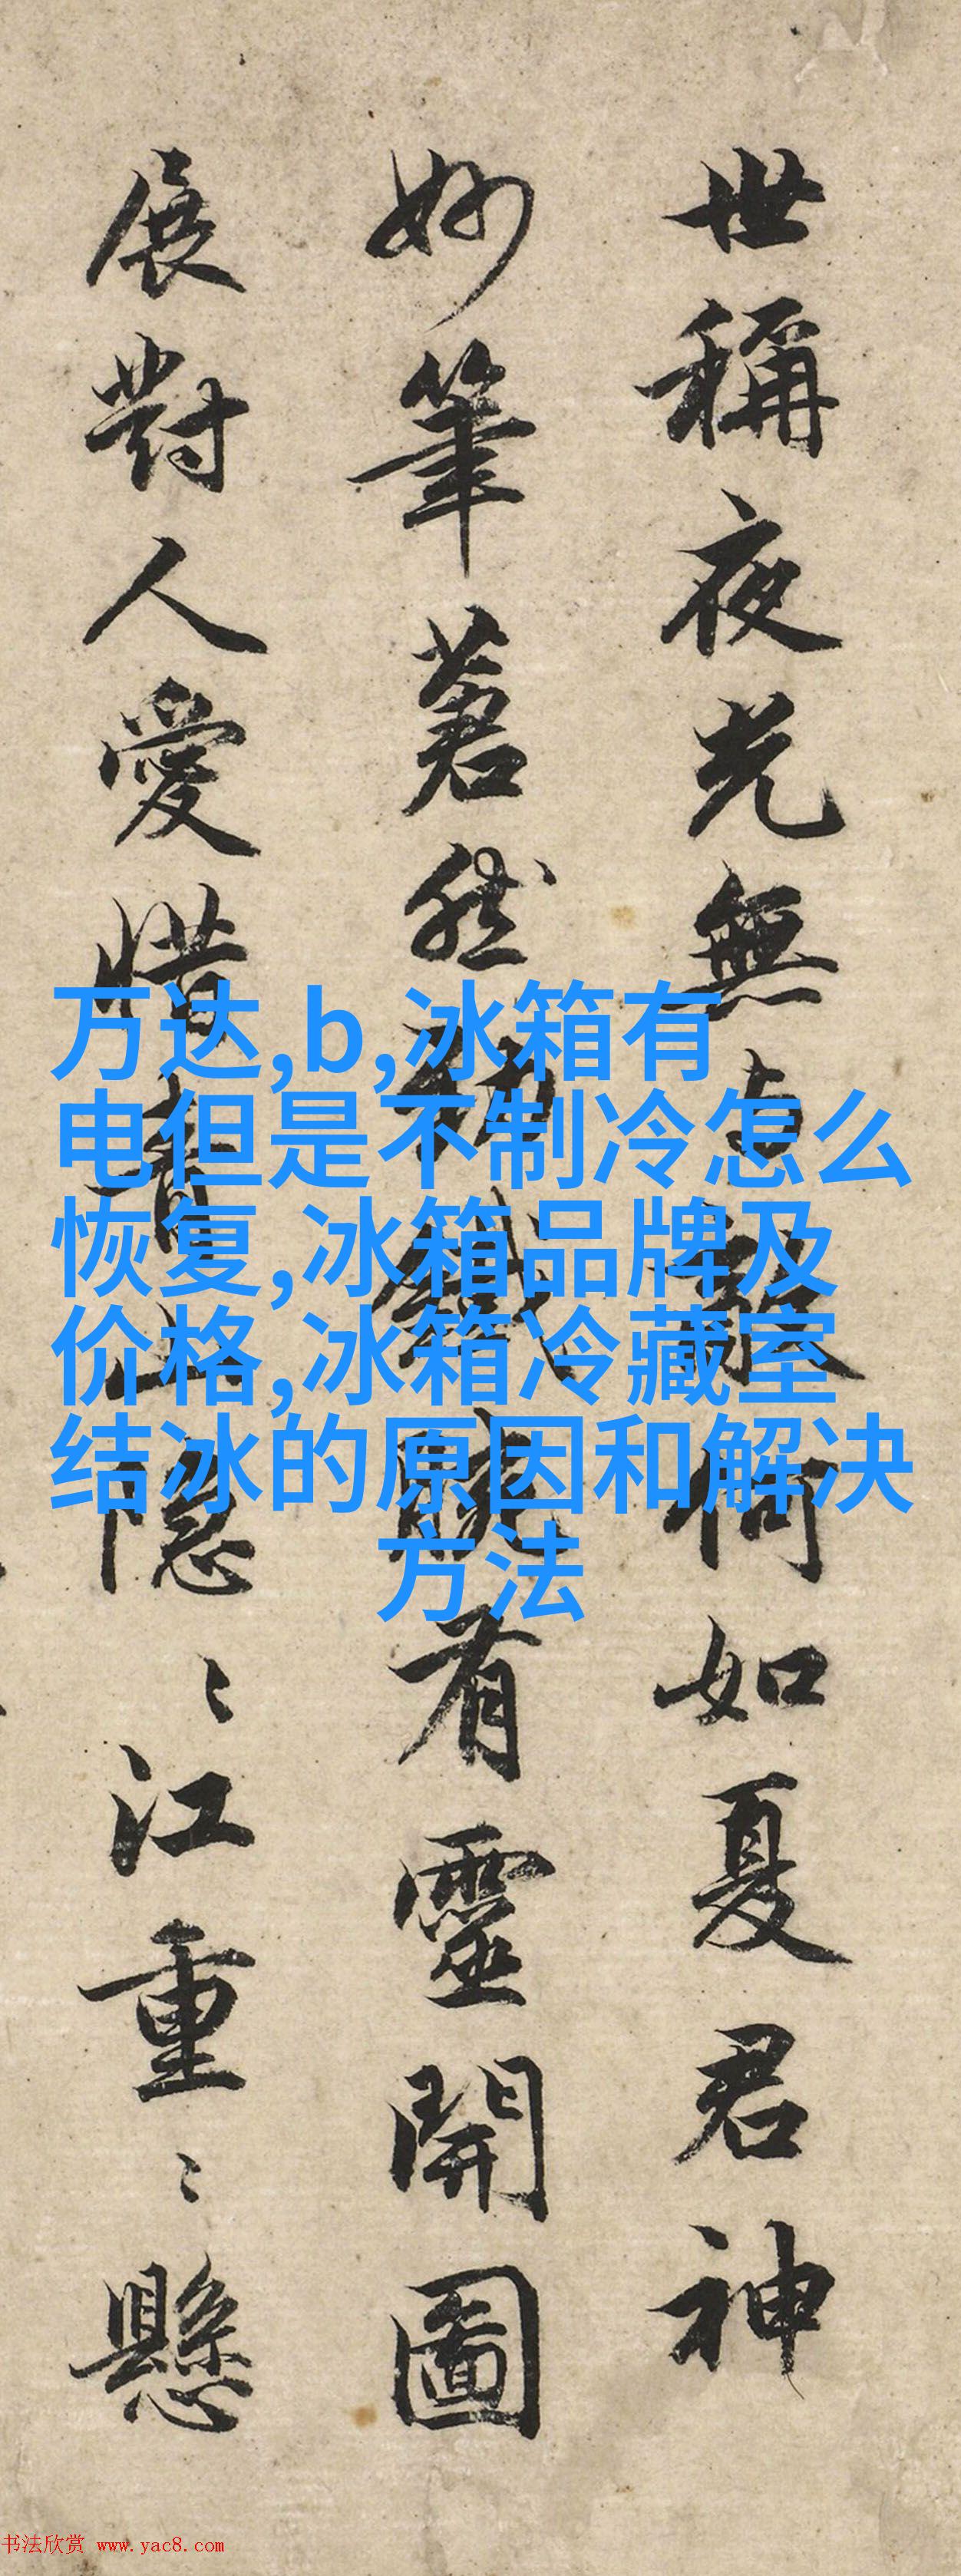 世稱夜光無與敵何如夏君神
妙筆蒼然鐵有靈開圖
展對人愛惜青山隱〻江重〻懸
万达,b,冰箱有
电但是不制冷怎么
恢复,冰箱品牌及
价格,冰箱冷藏室
结冰的原因和解决
方法
书法欣赏 www.yac8.com